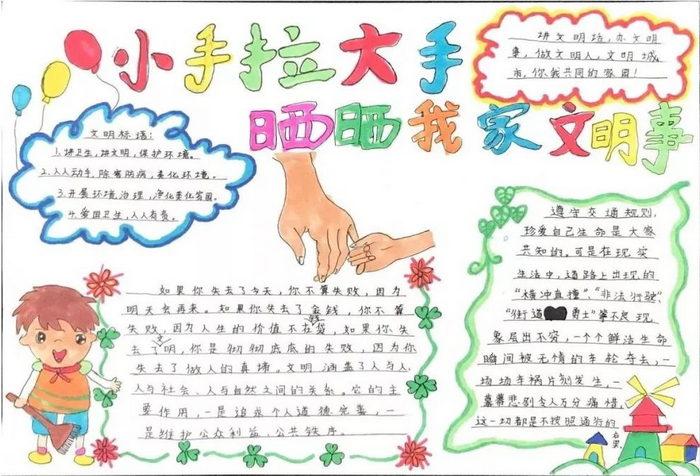 小手拉大手
晒晒我家文明事
讲文明话，办文明
事，做文明人，文明城
市，你我共同的家园！
文明标语：
1.讲卫生，讲文明，保护环境。
2.人人动手，除害防病，美化环境。
3.开展环境治理，净化美化家园。
4.爱国卫生，人人有责。
如果你失去了今天，你不算失败，因为
明天会再来。如果你失去了金钱，你不算
失败，因为人生的价值不在钱，如果你失
去了文明，你是彻彻底底的失败，因为你
失去了做人的真谛。文明涵盖了人与人、
人与社会、人与自然之间的关系。它的主
要作用，一是追求个人道德完善，一
是维护公众利益、公共秩序。
遵守交通规则，
珍爱自己生命是大家
共知的。可是在现实
生活中，道路上出现的
“横冲直撞”、“非法行驶”、
“街道勇士”等不良现
象层出不穷，一个个鲜活生命
瞬间被无情的车轮夺去，一
场场车祸片刻发生，一
幕幕悲剧令人万分痛惜，
这一切都是不按照通行的